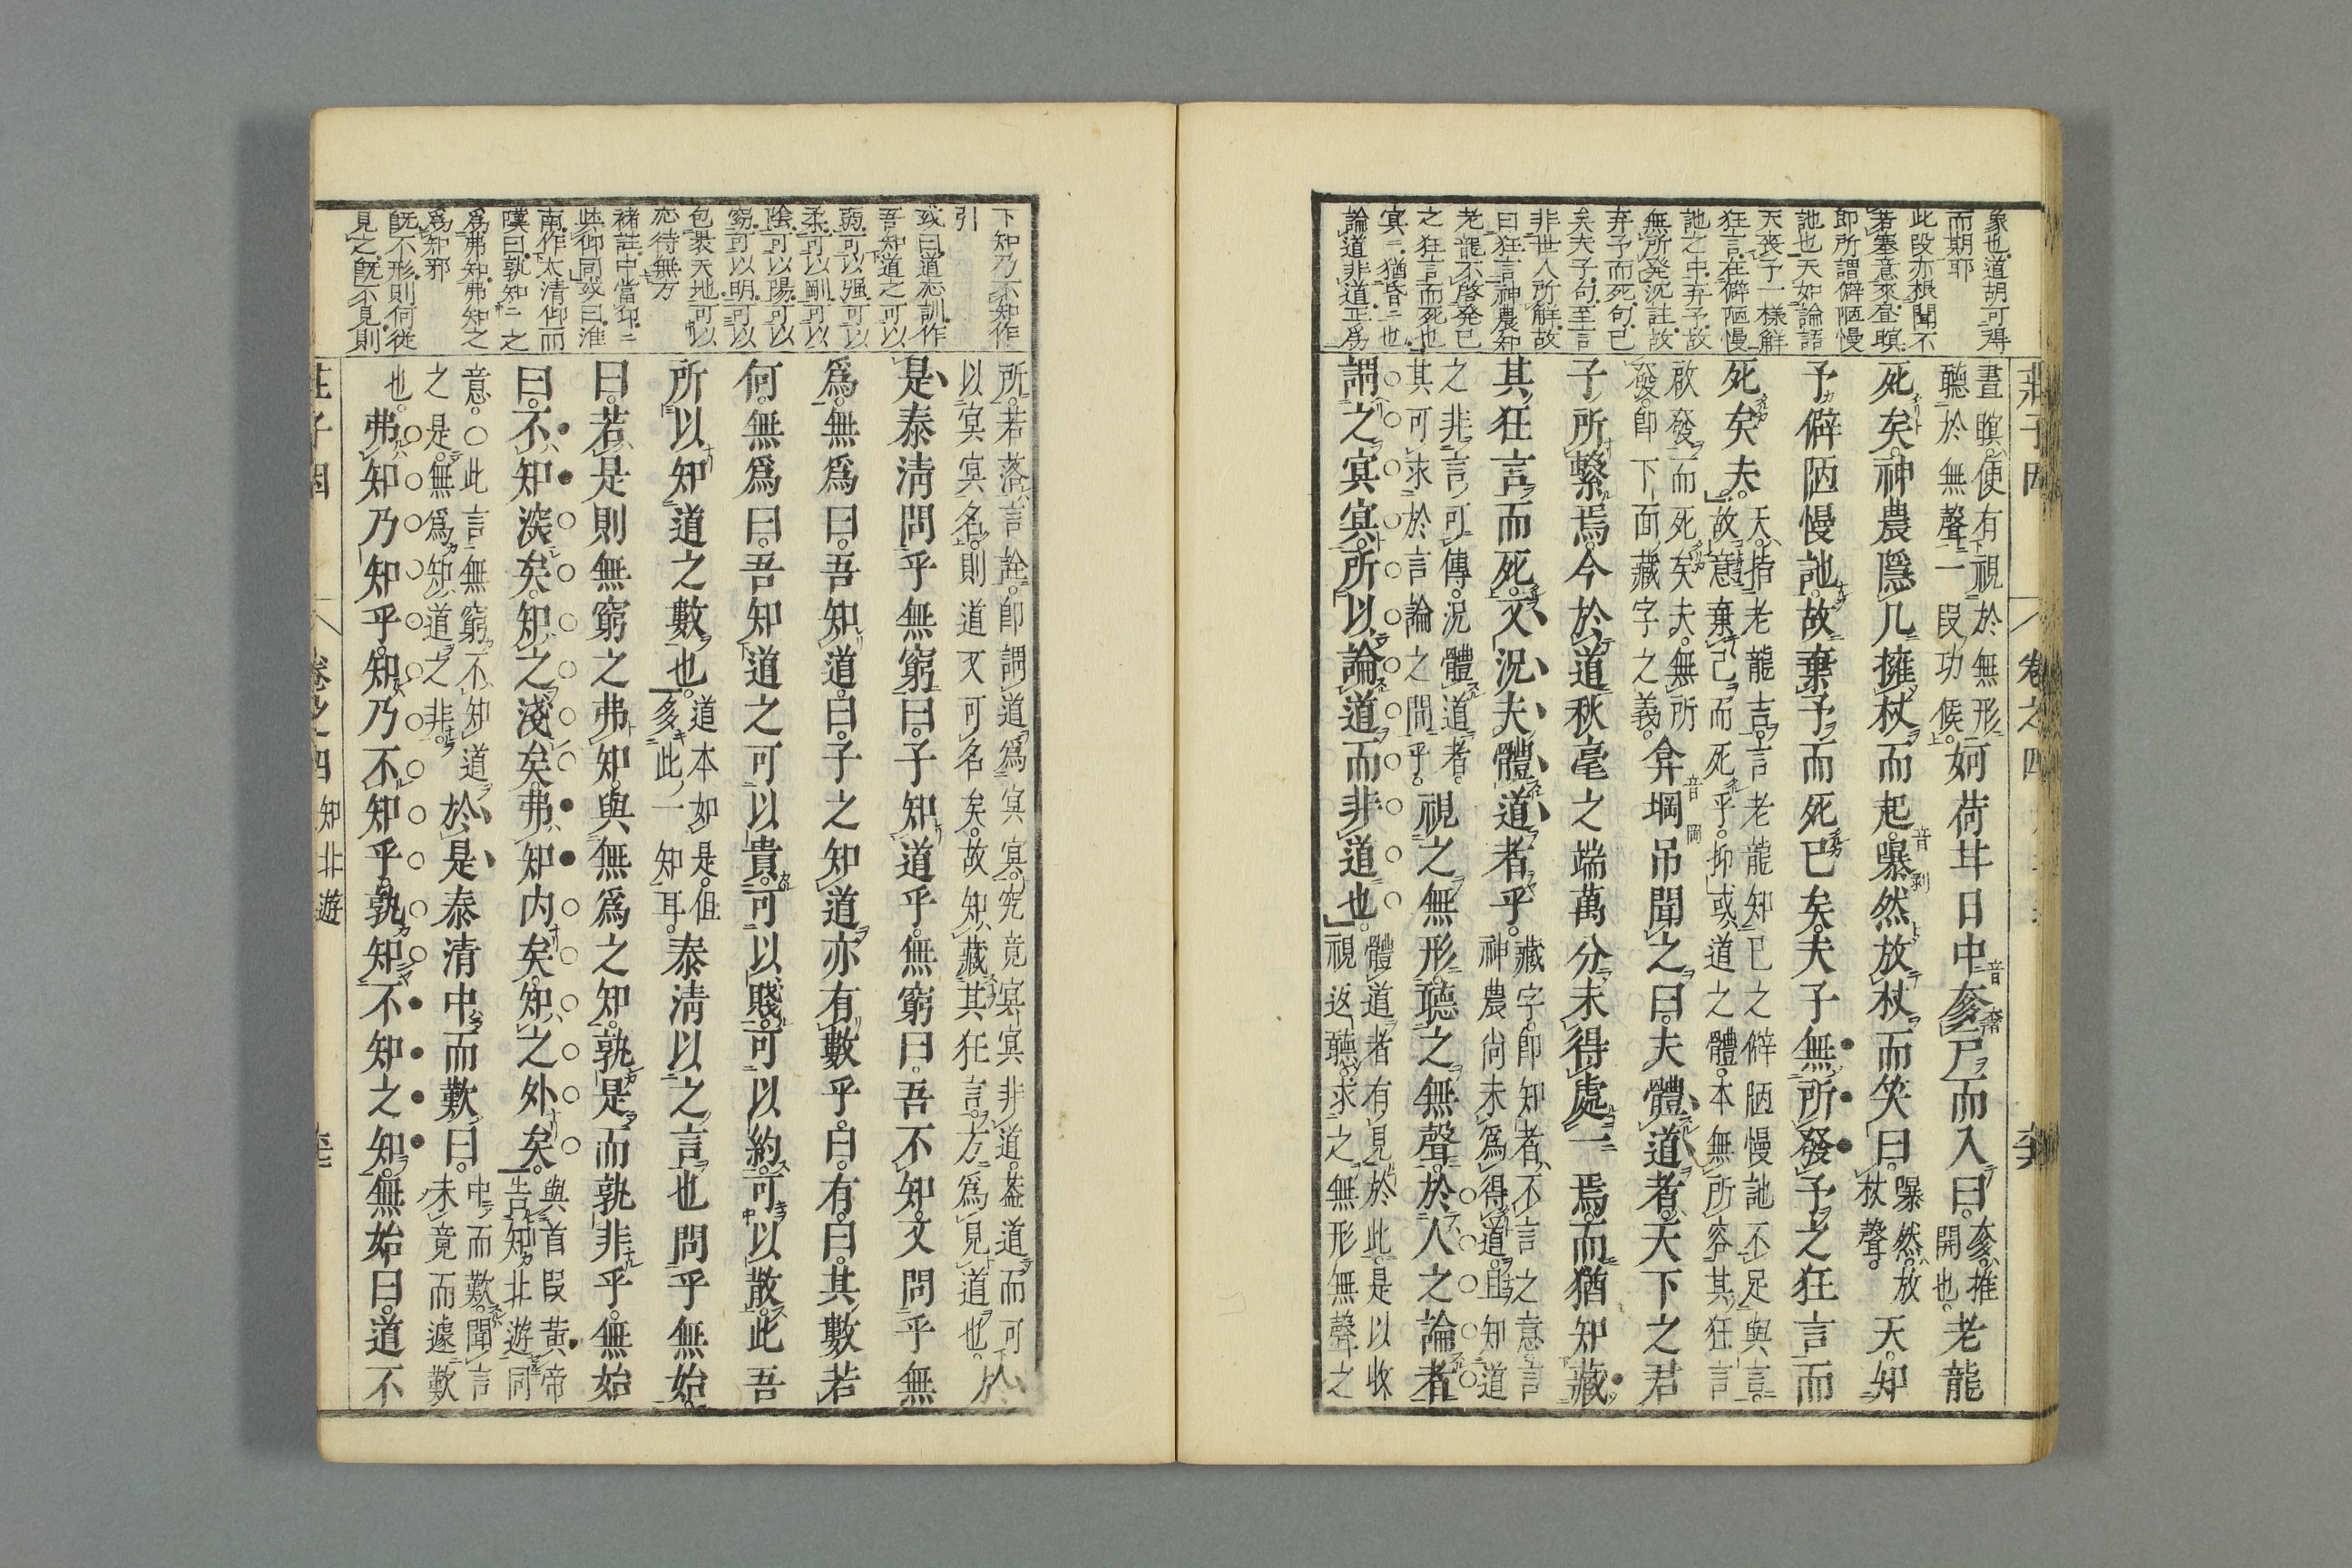 象也道胡可得
而期耶
此段亦根聞不
若塞意來晝瞑
即所謂僻陋慢
訑也天如論語
天喪予一樣解
狂言在僻陋慢
訑之中弃予故
無所発況註故
弃予而死句已
矣夫子句至言
非世人所解故
曰狂言神農知
老龍不啓発已
之狂言而死也
冥二猶昏二也
論道非道正爲
莊子四 卷之四
晝瞑便有視於無形
聽於無聲一段功候
妸荷甘日中奓戸而入曰
奓推
開也
老龍
死矣神農隱几擁杖而起曝然放杖而笑曰
曝然放
杖聲
天知
予僻陋慢訑故棄予而死已矣夫子無所發予之狂言而
死矣夫
天指老龍吉言老龍知已之僻陋慢訑不足與言
故意棄己而死乎抑或道之體本無所容其狂言
啟發而死矣夫無所
發即下面藏字之義
弇堈吊聞之曰夫體道者天下之君
子所繫焉今於道秋毫之端萬分未得處一焉而猶知藏
其狂言而死又況夫體道者乎
藏字即知者不言之意言
神農尚未爲得道且知道
之非言可傳況體道者
其可求於言論之間乎
視之無形聽之無聲於人之論者
謂之冥冥所以論道而非道也
體道者有見於此是以收
視返聽求之無形無聲之
下知乃不知作
引
或曰道恐訓作
吾知道之可以
弱可以強可以
柔可以剛可以
陰可以陽可以
窈可以明可以
包裹天地可以
応待無方
褚註中當仰二
與仰同或曰淮
南作太清仰而
嘆曰孰知二之
爲弗知弗知之
爲知邪
既不形則何從
見之既不見則
所若落言詮即謂道爲冥冥究竟冥冥非道蓋道而可
以冥冥名則道又可名矣故知藏其狂言方爲見道也
於
是泰清問乎無窮曰子知道乎無窮曰吾不知又問乎無
爲無爲曰吾知道曰子之知道亦有數乎曰有曰其數若
何無爲曰吾知道之可以貴可以賤可以約可以散此吾
所以知道之數也
道本如是但
奓此一知耳
泰清以之言也問乎無始
曰若是則無窮之弗知與無爲之知孰是而孰非乎無始
曰不知深矣知之淺矣弗知內矣知之外矣
與首段黃帝
告知北遊同
意〇此言無窮不知道
之是無爲知道之非
於是泰清中而歎曰
中而歎聞言
未竟而遽歎
也
弗知乃知乎知乃不知乎孰知不知之知無始曰道不
莊子四 卷之四 知北遊